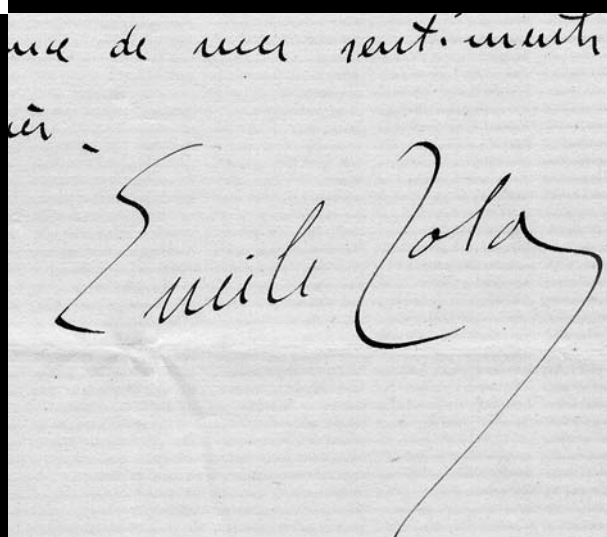 nce de mes sentiments
ués.
Emile Zola